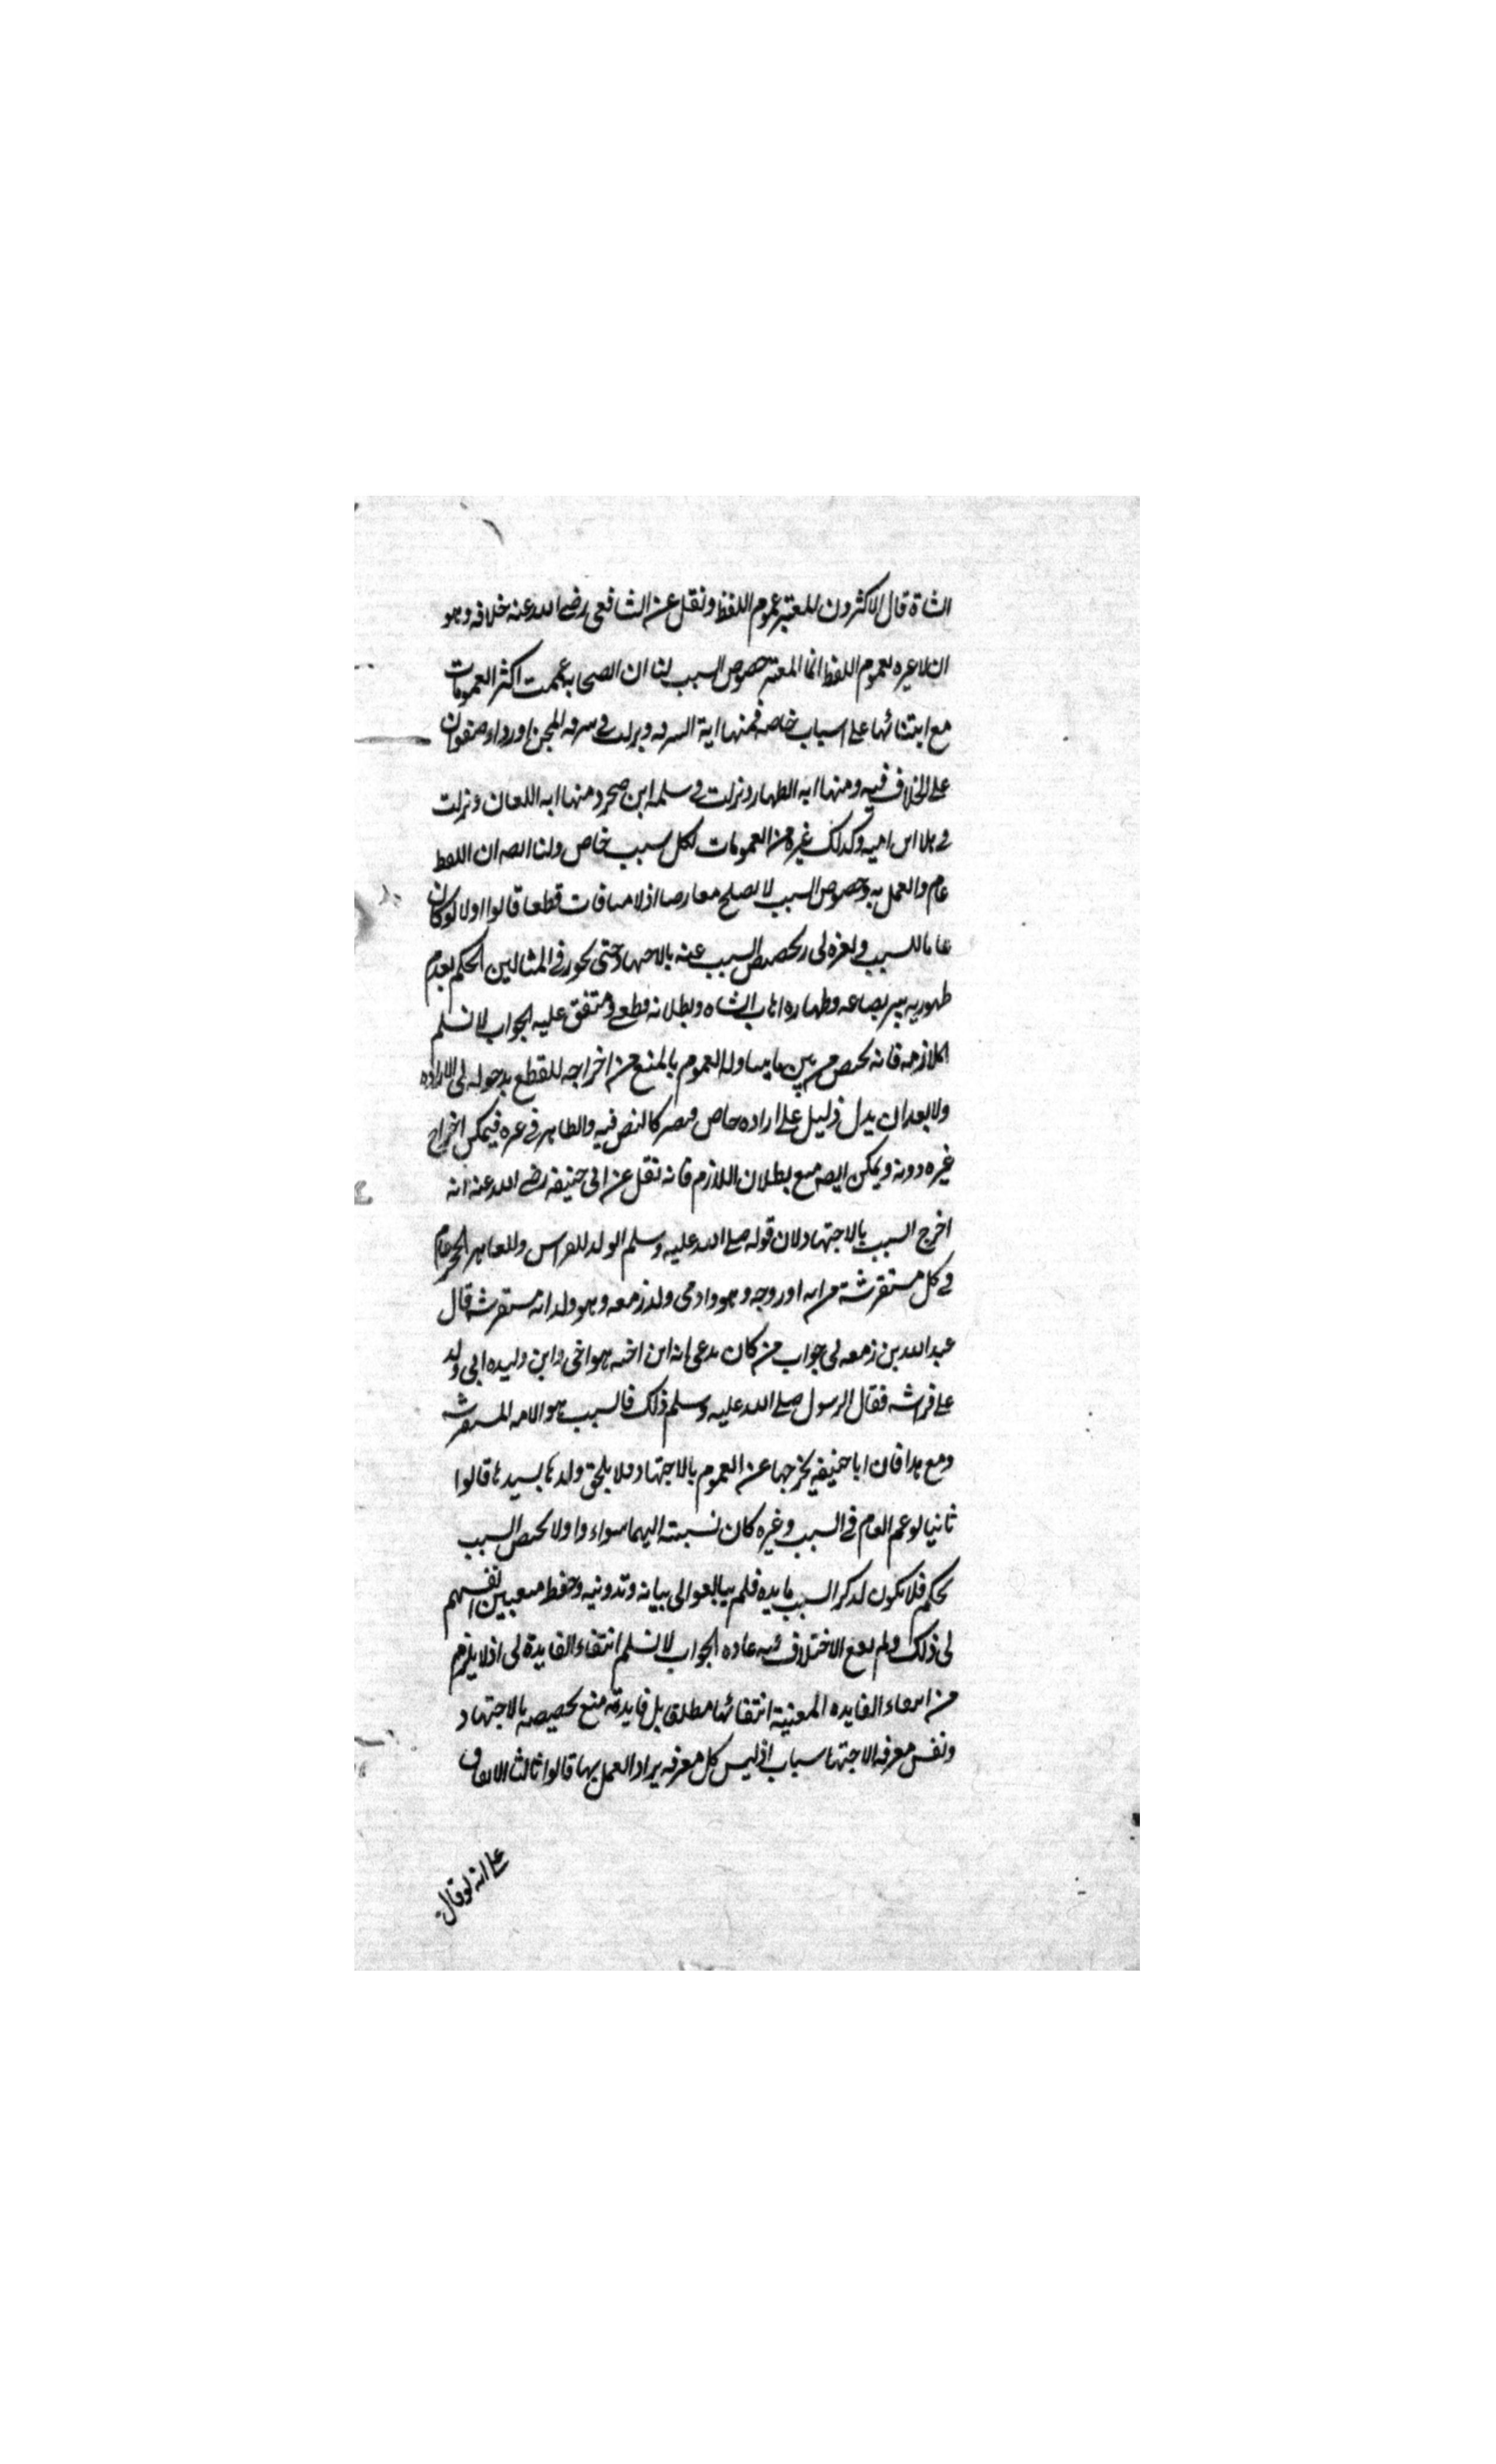 الشاة قال الاكثرون المعتبر عموم اللفظ ونقل عن الشافعى رضى الله عنه خلافه وهو
ان لا عبره لعموم اللفظ انما المعتبر خصوص السبب لنا ان الصحابه عممت اكثر العمومات
مع ابتنائها على اسباب خاصه فمنها اية السرقه ونزلت فى سرقه المجن او رداء صفوان
على الخلاف فيه ومنها ايه الظهار ونزلت فى سلمه ابن صخر ومنها ايه اللعان ونزلت
فى هلال ابن اميه وكذلك غيره من العمومات لكل سبب خاص ولنا ايضا ان اللفظ
عام والعمل به وخصوص السبب لا يصلح معارضا اذ لا منافات قطعا قالوا اولا لو كان
عاما للسبب ولغيره تخصيص السبب عنه بالاجتهاد حتى يجوز فى المثالين الحكم بعدم
طهوريه بير بضاعه وطهاره اهاب الشاه وبطلانه قطعى ومتفق عليه الجواب لا نسلم
الملازمه فانه يختص من بين ما يتناوله العموم بالمنع من اخراجه للقطع بدخوله فى الاراده
ولا بعد ان يدل دليل على اراده خاص فيصير كالنص فيه والظاهر فى غيره فيمكن اخراج
غيره دونه ويمكن ايضا منع بطلان اللازم فانه نقل عن ابى حنيفه رضى الله عنه انه
اخرج السبب بالاجتهاد لان قوله صلى الله عليه وسلم الولد للفراش وللعاهر الحجر عام
فى كل مستفرشة من امه او زوجه وهو وارد فى ولد زمعه وهو ولد امه مستفرشه قال
عبد الله بن زمعه فى جواب من كان يدعى انه ابن اخيه هو اخى وابن وليده ابى ولد
على فراشه فقال الرسول صلى الله عليه وسلم ذلك فالسبب هو الامه المستفرشه
ومع هذا فان ابا حنيفه يخرجها عن العموم بالاجتهاد فلا يلحق ولدها بسيدها قالوا
ثانيا لو عم العام فى السبب وغيره كان نسبته اليهما سواء اولا يختص السبب
بحكم فلا يكون لذكر السبب فايده فلم يبالغوا فى بيانه وتدوينه وحفظه متعبين انفسهم
فى ذلك ولم يقع الاختلاف فيه عاده الجواب لا نسلم انتفاء الفايدة اذ لا يلزم
من انتفاء الفايده المعينة انتفائها مطلقا بل فايدته منع تخصيصه بالاجتهاد
ونفس معرفه الاسباب اذ ليس كل معرفه يراد العمل بها قالوا ثالثا الاتفاق
على انه لو قال